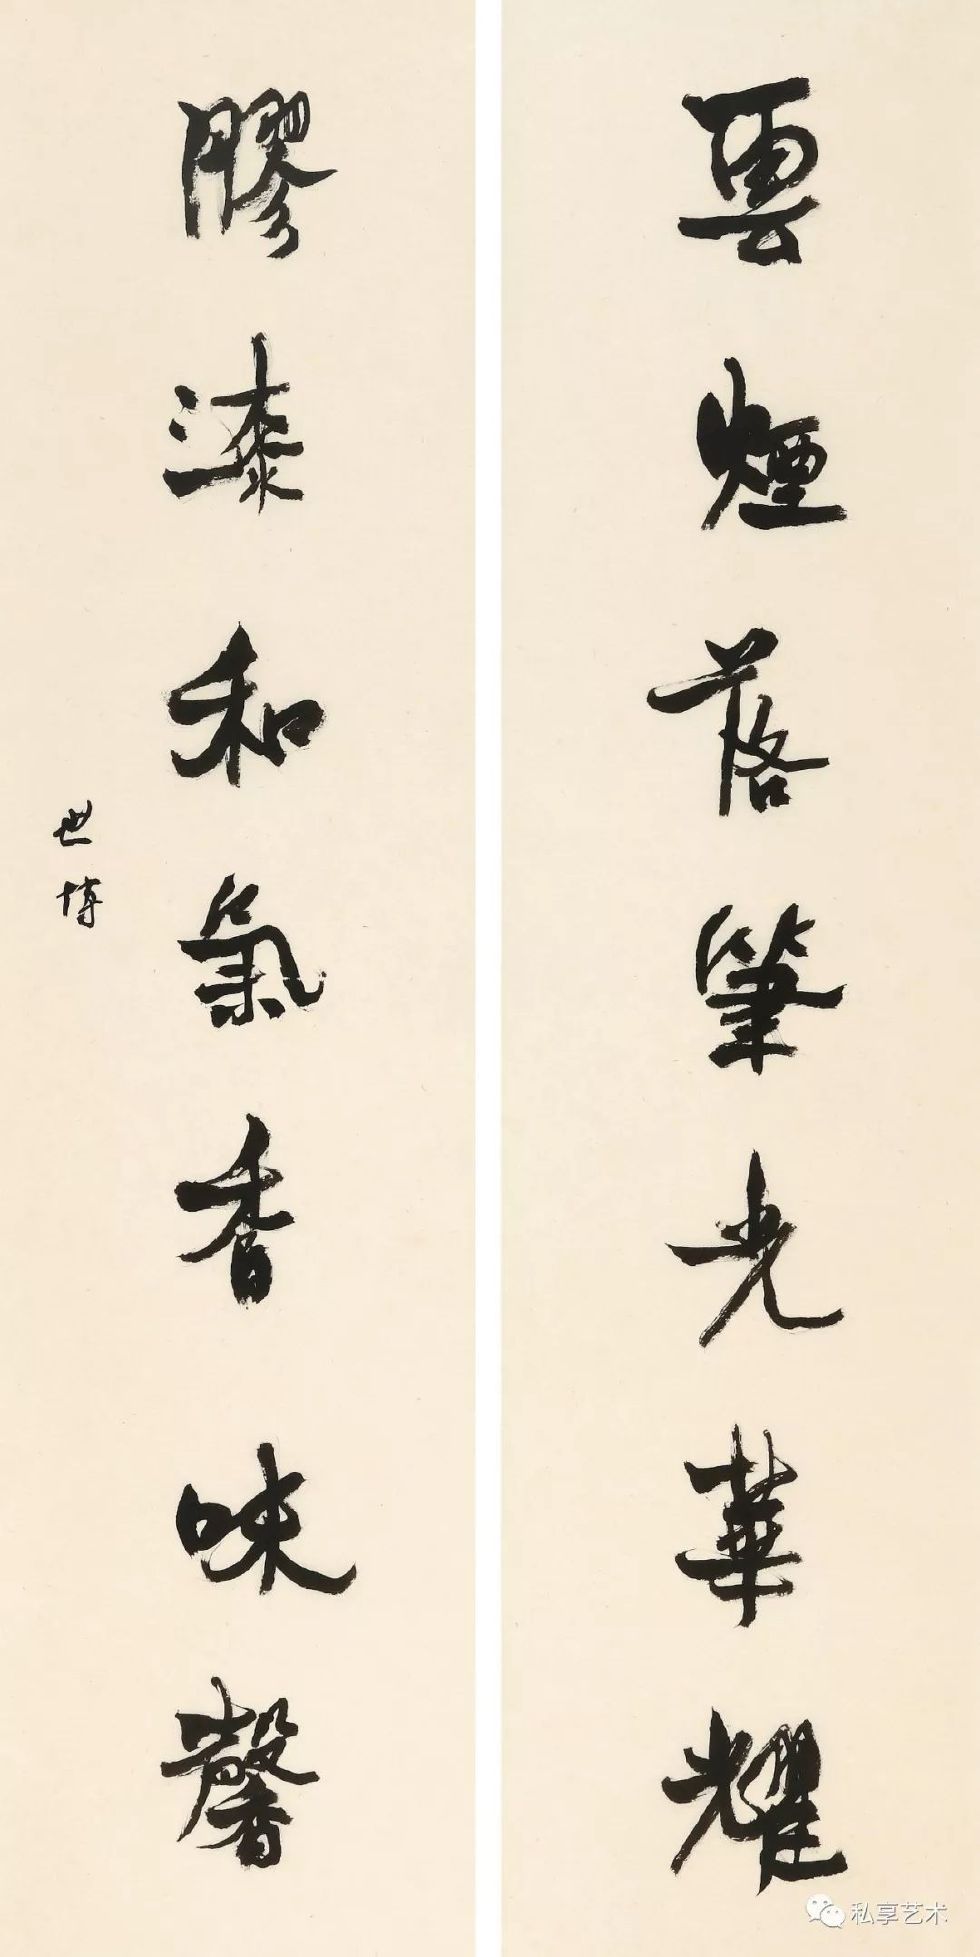 雲煙落筆光華耀
膠漆和氣香味馨
世博
私享艺术